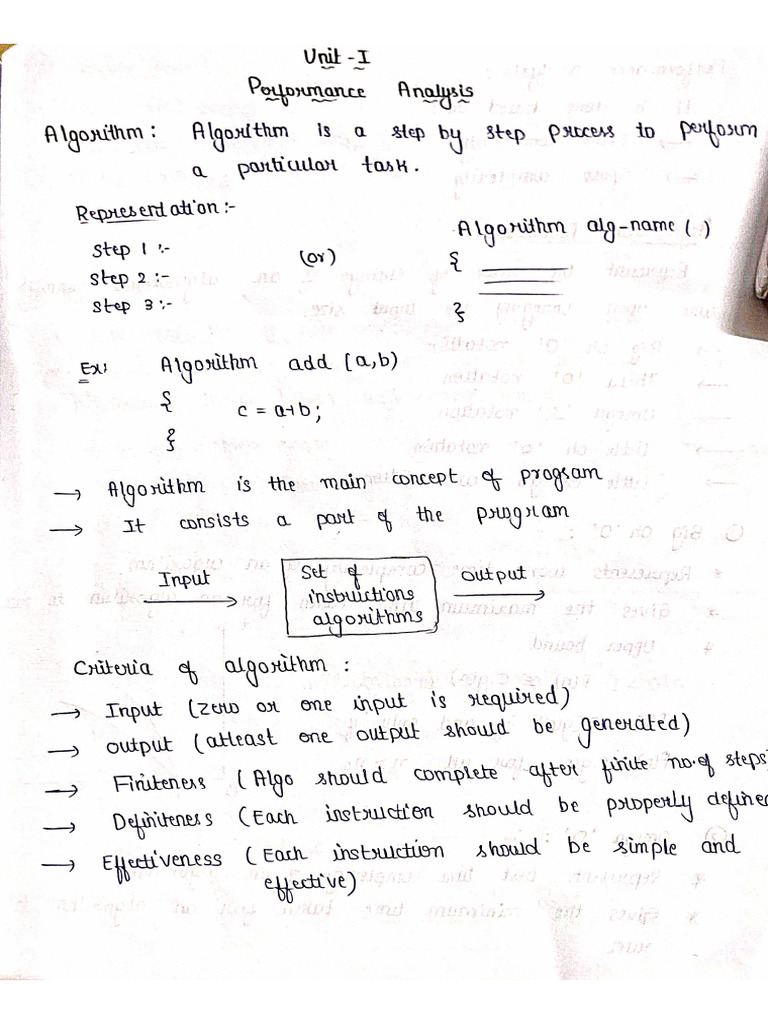 Unit - I
Performance Analysis
Algorithm : Algorithm is a step by step process to perform
a particular task.
Representation :-
Step 1 :-
Step 2 :-
Step 3 :-
(or)
Algorithm alg-name ( )
{
}
Ex: Algorithm add (a,b)
{
c = a+b ;
}
→ Algorithm is the main concept of program
→ It consists a part of the program
Input
Set of
instructions
algorithms
output
Criteria of algorithm :
→ Input (zero or one input is required)
→ output (atleast one output should be generated)
→ Finiteness (Algo should complete after finite no.of steps)
→ Definiteness (Each instruction should be properly defined
→ Effectiveness (Each instruction should be simple and
effective)